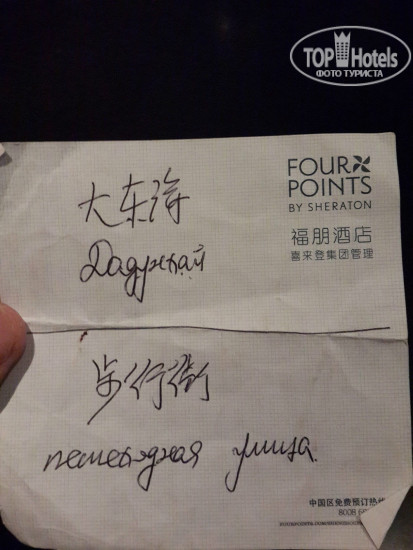 TOP Hotels
ФОТО ТУРИСТА
FOUR POINTS
BY SHERATON
福朋酒店
喜来登集团管理
大东海
Дадунхай
步行街
пешеходная улица
中国区免费预订热线